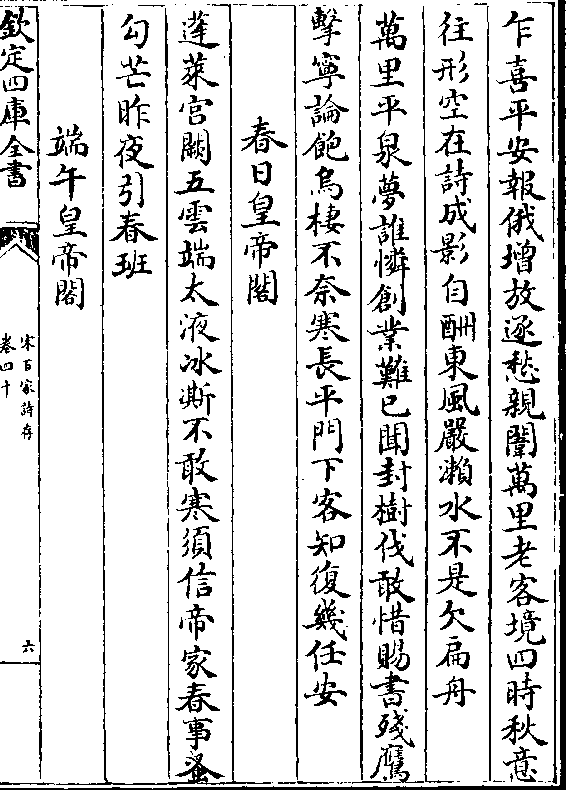 乍喜平安報俄增放逐愁親闈萬里老客境四時秋意
往形空在詩成影自酬東風嚴瀨水不是欠扁舟
萬里平泉夢誰憐創業難已聞封樹伐敢惜賜書殘鷹
擊寧論飽烏棲不奈寒長平門下客知復幾任安
春日皇帝閣
蓬萊宫闕五雲端太液冰澌不敢寒須信帝家春事蚤
勾芒昨夜引春班
端午皇帝閣
欽定四庫全書
宋百家詩存
卷四十
六